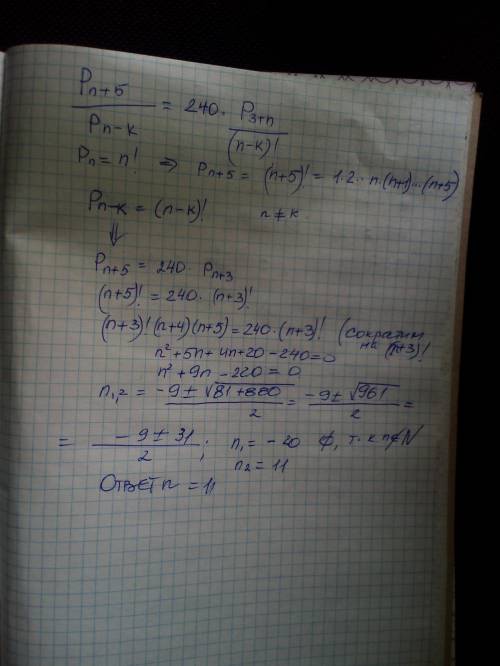 P_{n+5} / P_{n-k} = 240 · P_{3+n} / (n-k)!
P_n = n! ⇒ P_{n+5} = (n+5)! = 1·2·· n·(n+1)···(n+5)
P_{n-k} = (n-k)! n ≠ k
⇓
P_{n+5} = 240 · P_{n+3}
(n+5)! = 240 · (n+3)!
(n+3)! (n+4)(n+5) = 240 · (n+3)! (сократим
на (n+3)!
n² + 5n + 4n + 20 - 240 = 0
n² + 9n - 220 = 0
n_{1,2} = -9 ± √81+880 / 2 = -9 ± √961 / 2 =
= -9 ± 31 / 2 ; n₁ = -20 ∅, т.к n∉N
n₂ = 11
Ответ n = 11